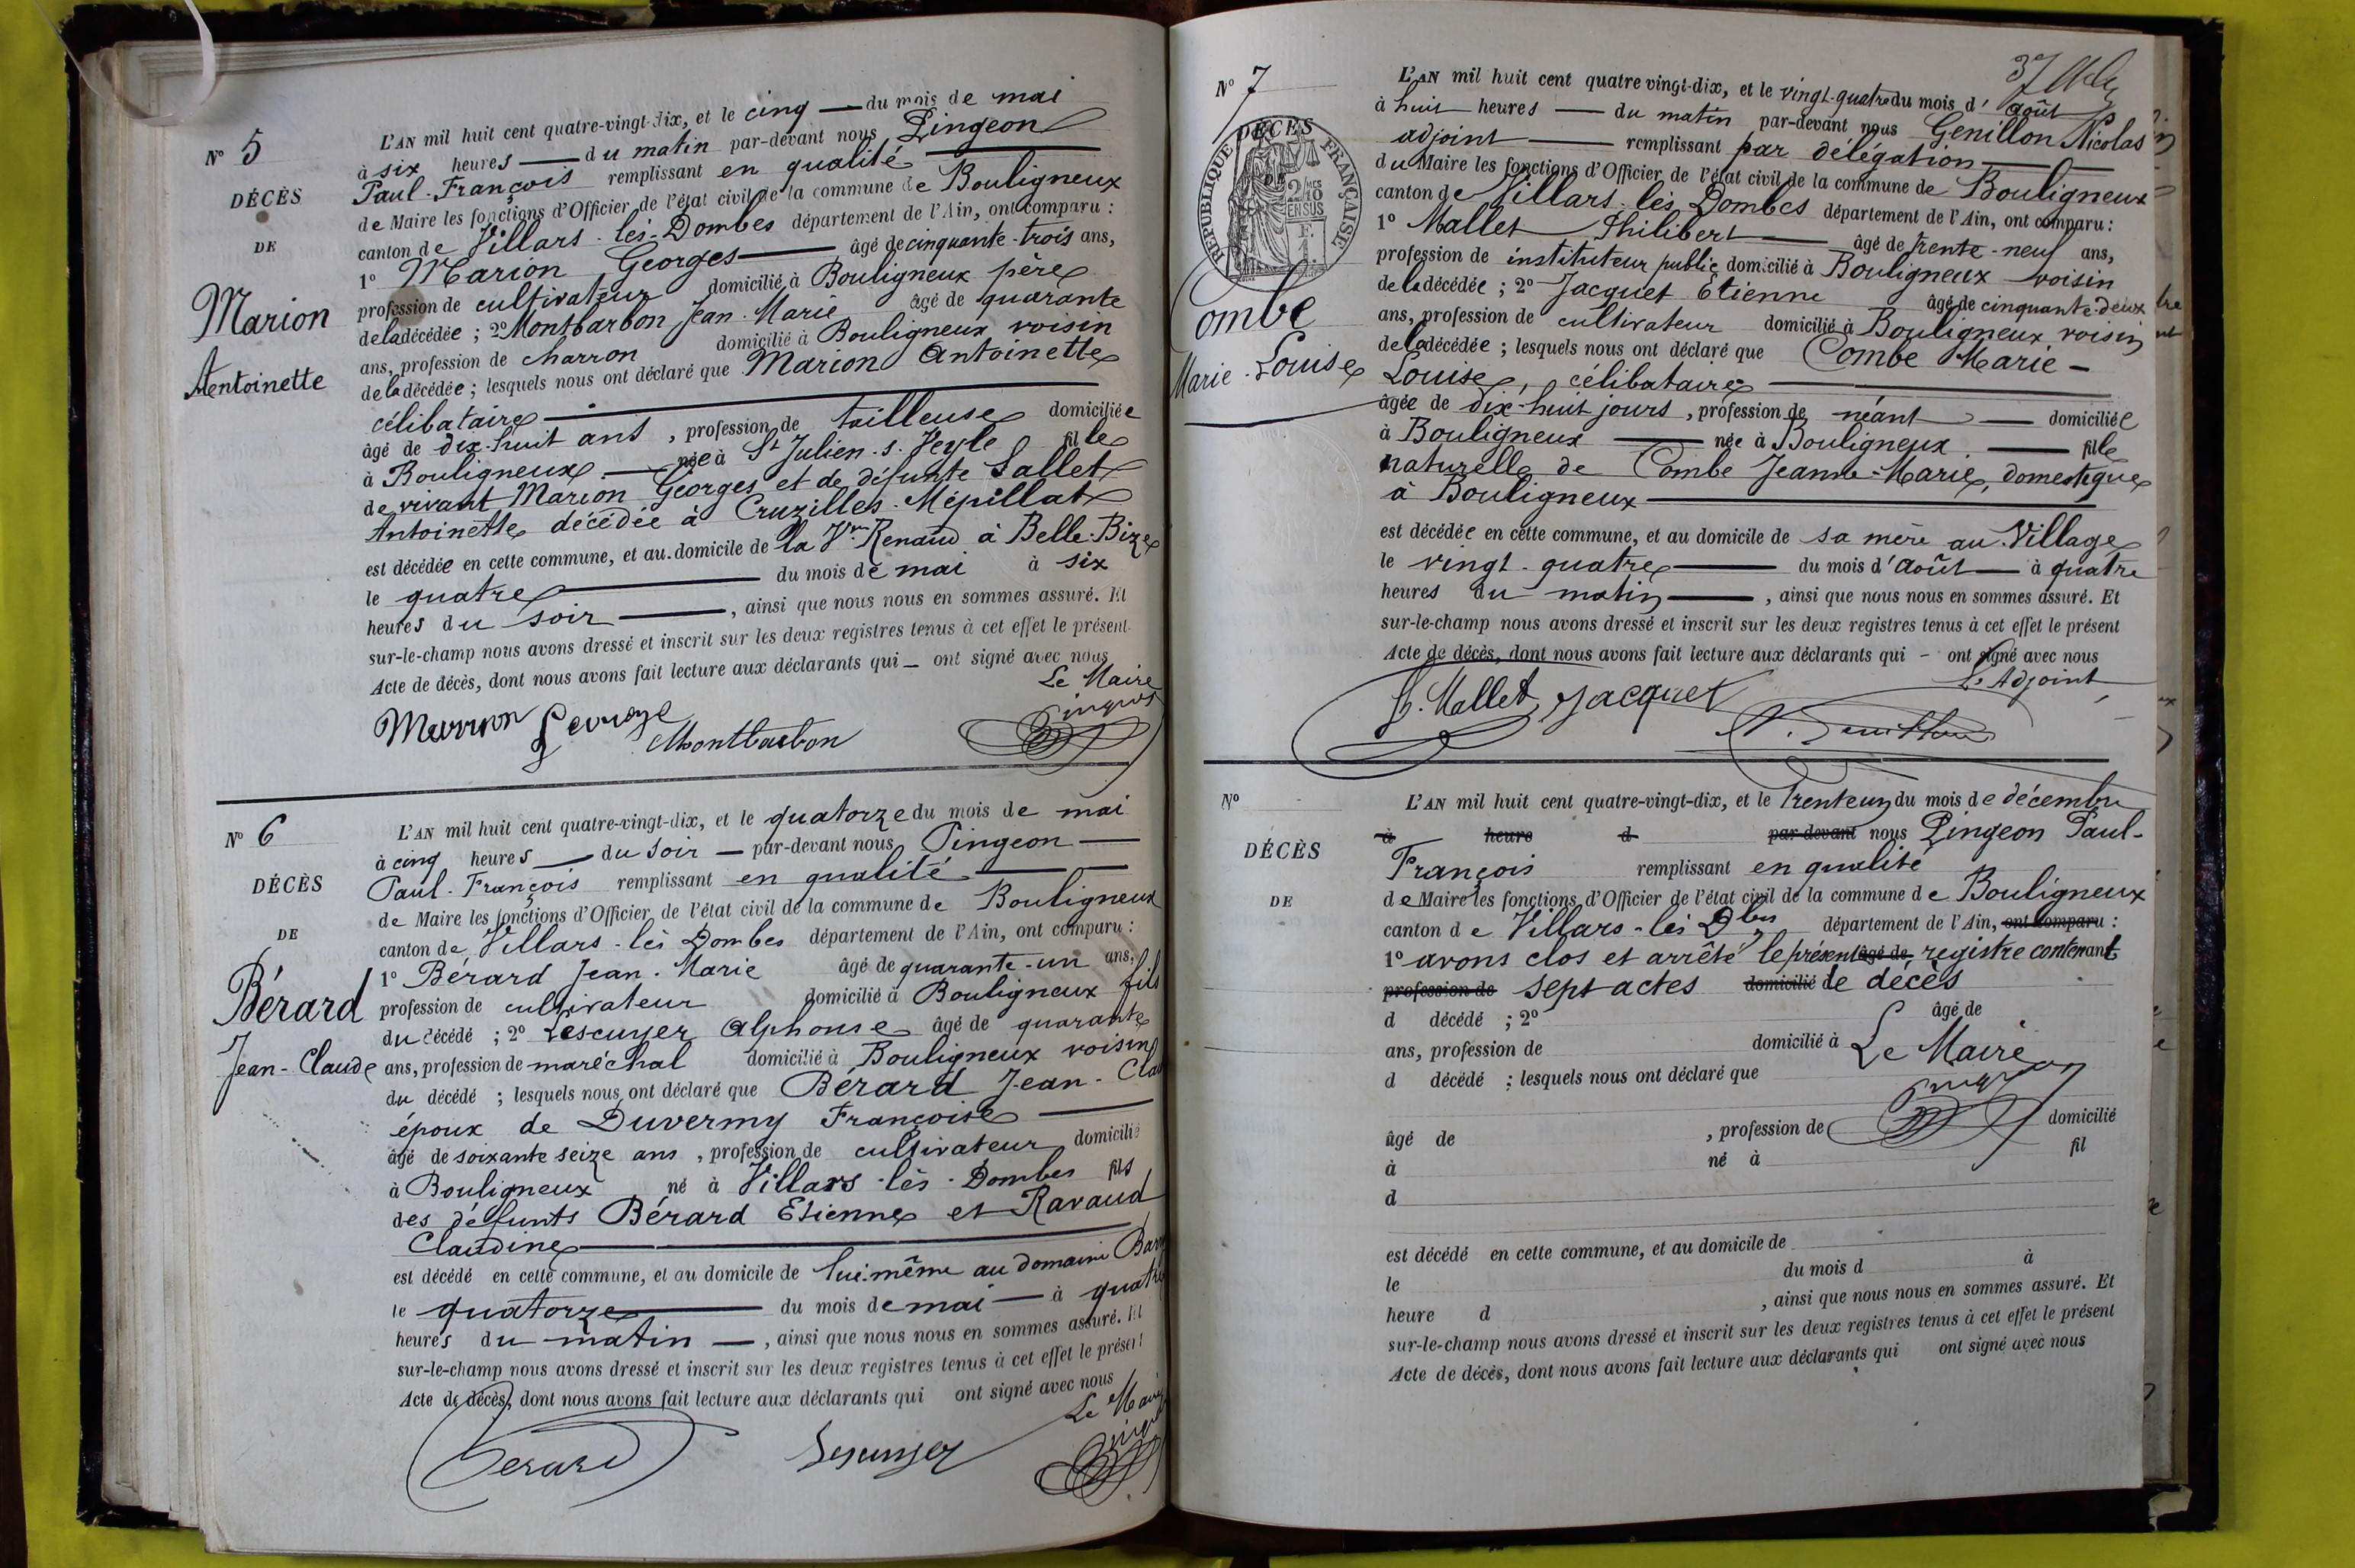 N° 5
DÉCÈS
DE
Marion
Antoinette
L'AN mil huit cent quatre-vingt-dix, et le cinq — du mois de mai
à six heures — du matin par-devant nous Pingeon
Paul-François remplissant en qualité —
de Maire les fonctions d'Officier de l'état civil de la commune de Bouligneux
canton de Villars-lès-Dombes département de l'Ain, ont comparu :
1° Marion Georges — âgé de cinquante-trois ans,
profession de cultivateur domicilié à Bouligneux père
de la décédée ; 2° Montbarbon Jean-Marie âgé de quarante
ans, profession de charron domicilié à Bouligneux voisin
de la décédée ; lesquels nous ont déclaré que Marion Antoinette
célibataire —
âgé de dix-huit ans, profession de tailleuse domiciliée
à Bouligneux — née à St Julien-s-Veyle fille
de vivant Marion Georges et de défunte Sallet
Antoinette décédée à Cruzilles-Mépillat
est décédée en cette commune, et au domicile de la Vve Renaud à Belle-Bize
le quatre — du mois de mai à six
heures du soir —, ainsi que nous nous en sommes assuré. Et
sur-le-champ nous avons dressé et inscrit sur les deux registres tenus à cet effet le présent
Acte de décès, dont nous avons fait lecture aux déclarants qui — ont signé avec nous
Le Maire
Marion George Montbarbon Pingeon
N° 6
DÉCÈS
DE
Bérard
Jean-Claude
L'AN mil huit cent quatre-vingt-dix, et le quatorze du mois de mai
à cinq heures — du soir — par-devant nous Pingeon —
Paul-François remplissant en qualité —
de Maire les fonctions d'Officier de l'état civil de la commune de Bouligneux
canton de Villars-lès Dombes département de l'Ain, ont comparu :
1° Bérard Jean-Marie âgé de quarante-un ans,
profession de cultivateur domicilié à Bouligneux fils
du décédé ; 2° Lescuyer Alphonse âgé de quarante
ans, profession de maréchal domicilié à Bouligneux voisin
du décédé ; lesquels nous ont déclaré que Bérard Jean-Cla
époux de Duvermy Françoise —
âgé de soixante seize ans, profession de cultivateur domicilié
à Bouligneux né à Villars-lès-Dombes fils
des défunts Bérard Etienne et Ravaud
Claudine —
est décédé en cette commune, et au domicile de lui-même au domaine Bar
le quatorze — du mois de mai — à quatre
heures du matin —, ainsi que nous nous en sommes assuré. Et
sur-le-champ nous avons dressé et inscrit sur les deux registres tenus à cet effet le présent
Acte de décès, dont nous avons fait lecture aux déclarants qui ont signé avec nous
Le Maire
Berard Lescuyer Pingeon
37
N° 7
DÉCÈS
RÉPUBLIQUE FRANÇAISE
2/10
EN SUS
Combe
Marie-Louise
L'AN mil huit cent quatre vingt-dix, et le vingt-quatre du mois d'août
à huit heures — du matin par-devant nous Genillon Nicolas
adjoint — remplissant par délégation —
du Maire les fonctions d'Officier de l'état civil de la commune de Bouligneux
canton de Villars-lès Dombes département de l'Ain, ont comparu :
1° Mallet Philibert — âgé de trente-neuf ans,
profession de instituteur public domicilié à Bouligneux voisin
de la décédée ; 2° Jacquet Etienne âgé de cinquante-deux
ans, profession de cultivateur domicilié à Bouligneux voisin
de la décédée ; lesquels nous ont déclaré que Combe Marie-
Louise, célibataire —
âgée de dix-huit jours, profession de néant — domiciliée
à Bouligneux — née à Bouligneux — fille
naturelle de Combe Jeanne-Marie, domestique
à Bouligneux —
est décédée en cette commune, et au domicile de sa mère au Village
le vingt-quatre — du mois d'août — à quatre
heures du matin —, ainsi que nous nous en sommes assuré. Et
sur-le-champ nous avons dressé et inscrit sur les deux registres tenus à cet effet le présent
Acte de décès, dont nous avons fait lecture aux déclarants qui — ont signé avec nous
L'Adjoint
P. Mallet Jacquet N. Genillon
N°
DÉCÈS
DE
L'AN mil huit cent quatre-vingt-dix, et le trente un du mois de décembre
à heure d par-devant nous Pingeon Paul-
François remplissant en qualité
de Maire les fonctions d'Officier de l'état civil de la commune de Bouligneux
canton de Villars-lès Dbes département de l'Ain, ont comparu :
1° avons clos et arrêté le présent âgé de registre contenant
profession de sept actes domicilié de décès
d décédé ; 2° âgé de
ans, profession de domicilié à Le Maire
d décédé ; lesquels nous ont déclaré que
Pingeon
âgé de , profession de domicilié
à né à fil
d
est décédé en cette commune, et au domicile de
le du mois d à
heure d , ainsi que nous nous en sommes assuré. Et
sur-le-champ nous avons dressé et inscrit sur les deux registres tenus à cet effet le présent
Acte de décès, dont nous avons fait lecture aux déclarants qui ont signé avec nous